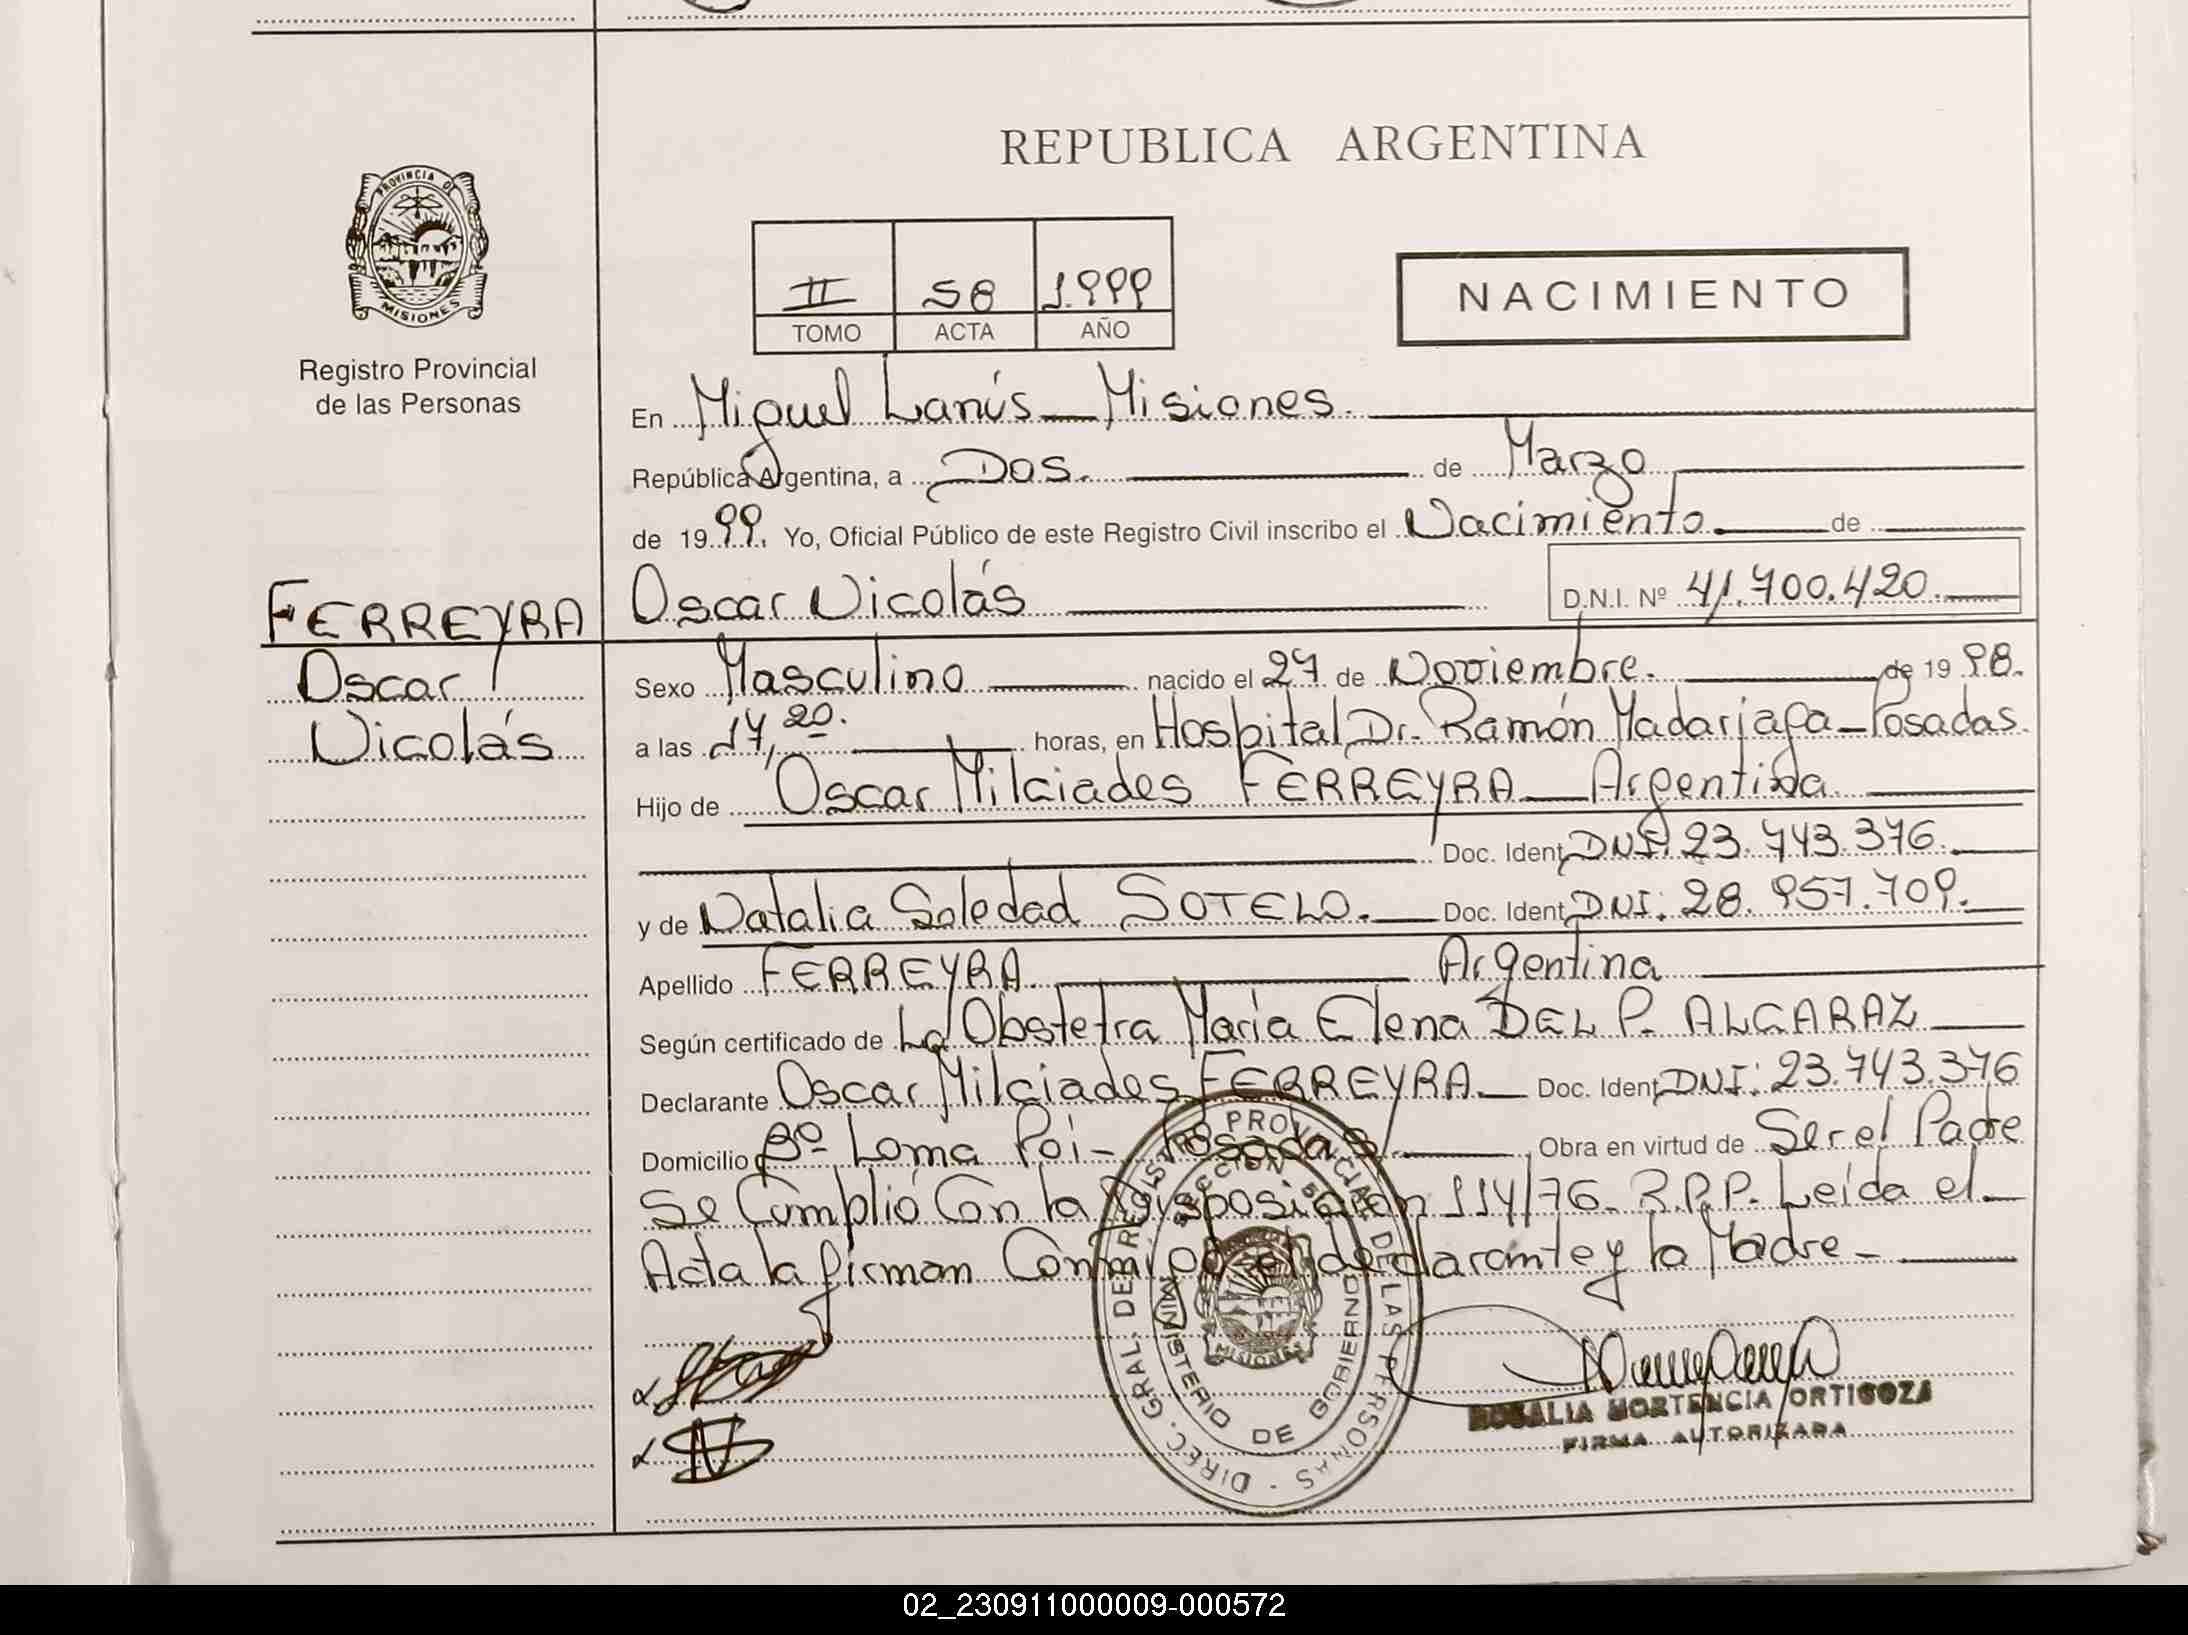 REPUBLICA ARGENTINA
PROVINCIA DE
MISIONES
Registro Provincial
de las Personas
II 58 1.999
TOMO ACTA AÑO
NACIMIENTO
En Miguel Lanús - Misiones.
República Argentina, a Dos. de Marzo
de 1999. Yo, Oficial Público de este Registro Civil inscribo el Nacimiento. de
FERREYRA
Oscar
Nicolás
Oscar Nicolás D.N.I. Nº 41.700.420.
Sexo Masculino nacido el 27 de Noviembre. de 1998.
a las 17,20. horas, en Hospital Dr. Ramón Madariaga - Posadas.
Hijo de Oscar Milciades FERREYRA - Argentina
Doc. Ident. DNI: 23.743.376.
y de Natalia Soledad SOTELO. Doc. Ident. DNI: 28.957.709.
Apellido FERREYRA. Argentina
Según certificado de La Obstetra María Elena DEL P. ALCARAZ
Declarante Oscar Milciades FERREYRA. Doc. Ident. DNI: 23.743.376
Domicilio Bº Loma Poi - Posadas. Obra en virtud de Ser el Padre
Se Cumplió Con la Disposición 114/76. R.P.P. Leída el
Acta la firman Conmigo el declarante y la Madre -
DIREC. GRAL. DE REGISTRO PROVINCIAL DE LAS PERSONAS
MINISTERIO DE GOBIERNO
MISIONES
ROSALIA HORTENCIA ORTIGOZA
FIRMA AUTORIZADA
02_230911000009-000572